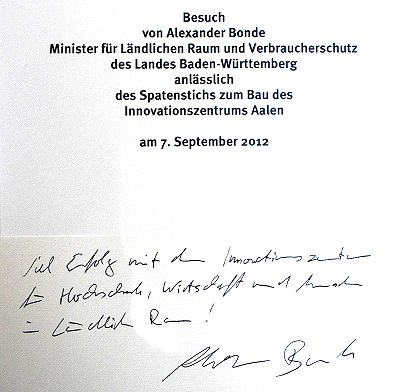 Besuch
von Alexander Bonde
Minister für Ländlichen Raum und Verbraucherschutz
des Landes Baden-Württemberg
anlässlich
des Spatenstichs zum Bau des
Innovationszentrums Aalen
am 7. September 2012
Viel Erfolg mit dem Innovationszentrum
für Hochschule, Wirtschaft und
im Ländlichen Raum!
Bonde